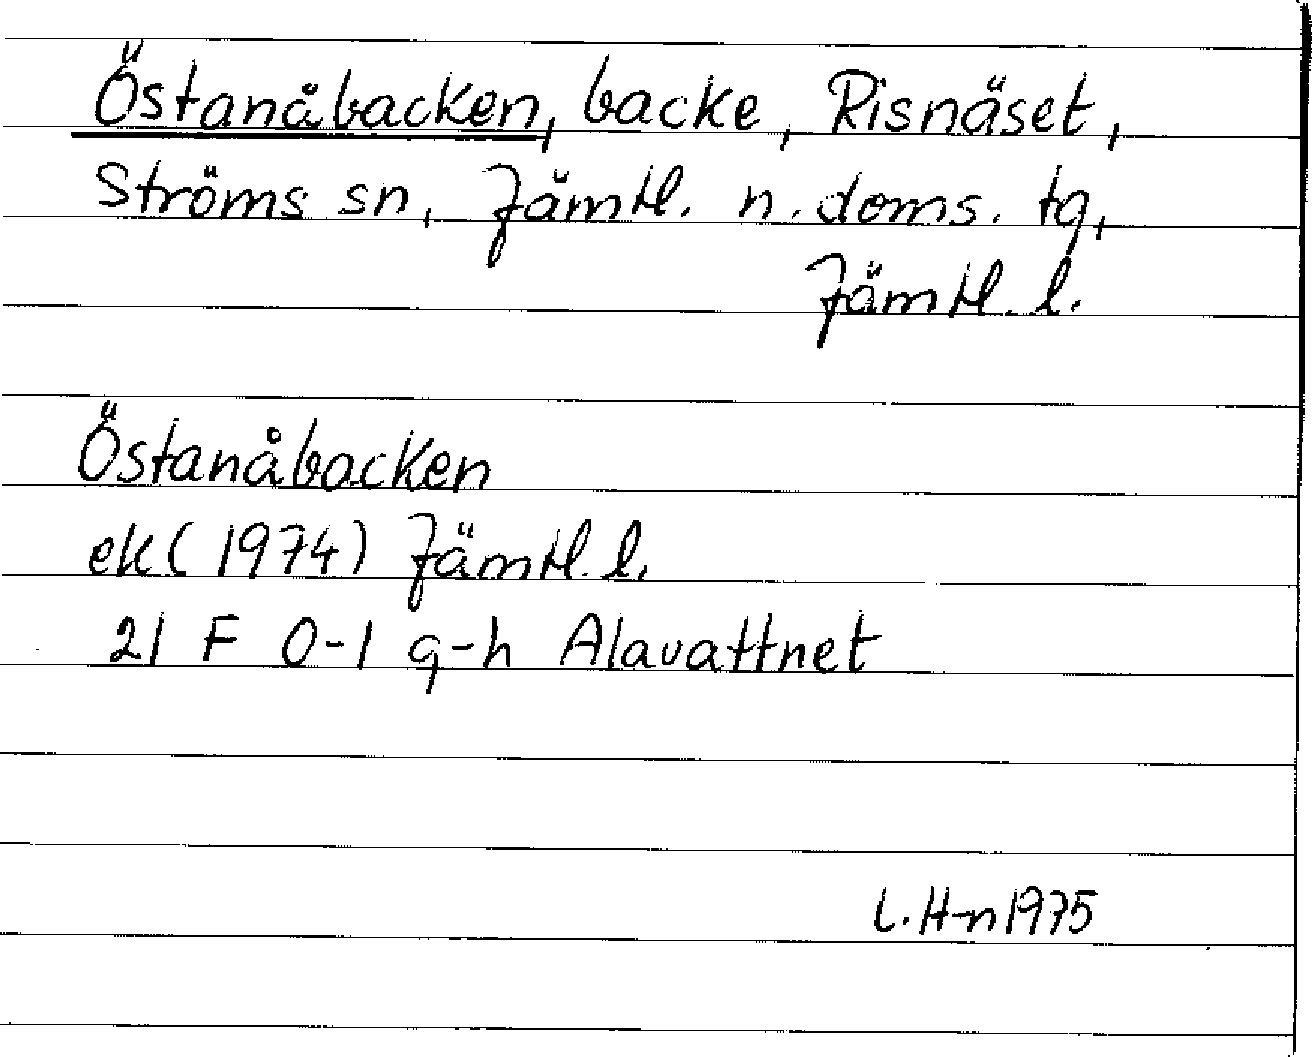 Östanåbacken, backe, Risnäset,
Ströms sn, Jämtl. n. doms. tg,
Jämtl. l.
Östanåbacken
ek (1974) Jämtl. l.
21 F 0-1 g-h Alavattnet
L. H-n 1975